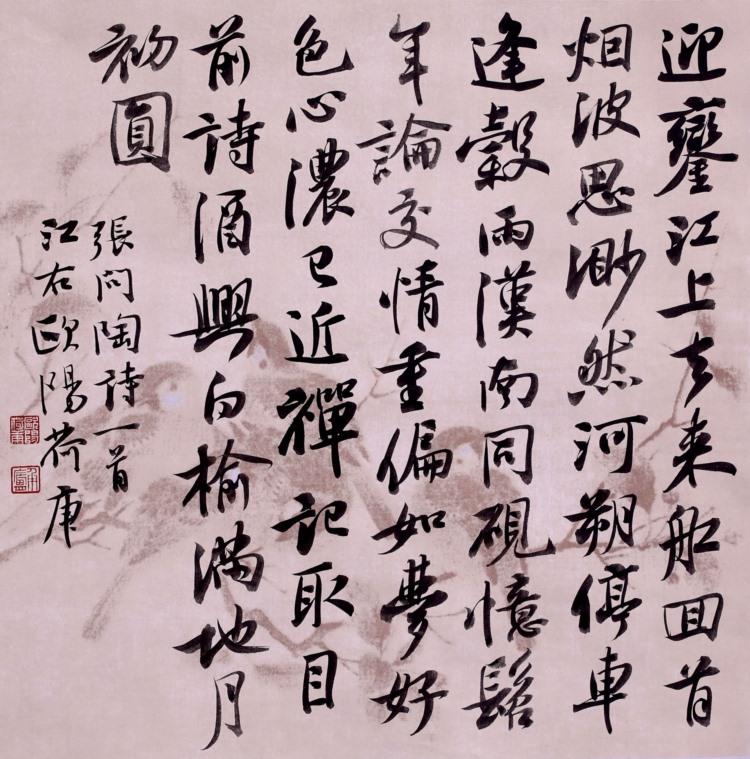 迎鑾江上去来船回首
烟波思渺然河朔停車
逢穀雨漢南同硯憶髫
年論交情重偏如夢好
色心濃已近禪記取目
前詩酒興白榆滿地月
初圓
張問陶詩一首
江右歐陽荷庚